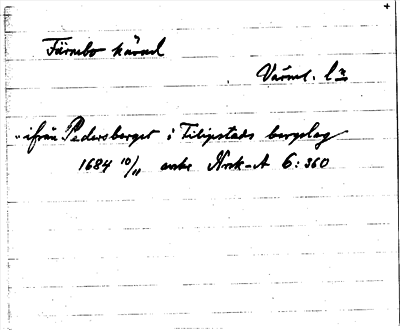 Färnebo härad
Värml. l:n
"ifrån Pedersberget i Filipstads bergslag
1684 10/11 Nrk-A 6:360